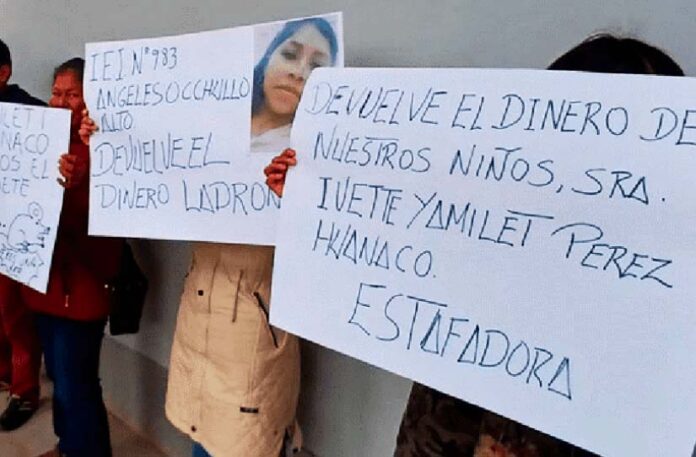 ILET I
NACO
OS EL
ETE
IEI N° 983
ANGELES OCCHULLO
ALTO
DEVUELVE EL
DINERO LADRON
DEVUELVE EL DINERO DE
NUESTROS NIÑOS, SRA.
IVETTE YAMILET PEREZ
HUANACO.
ESTAFADORA